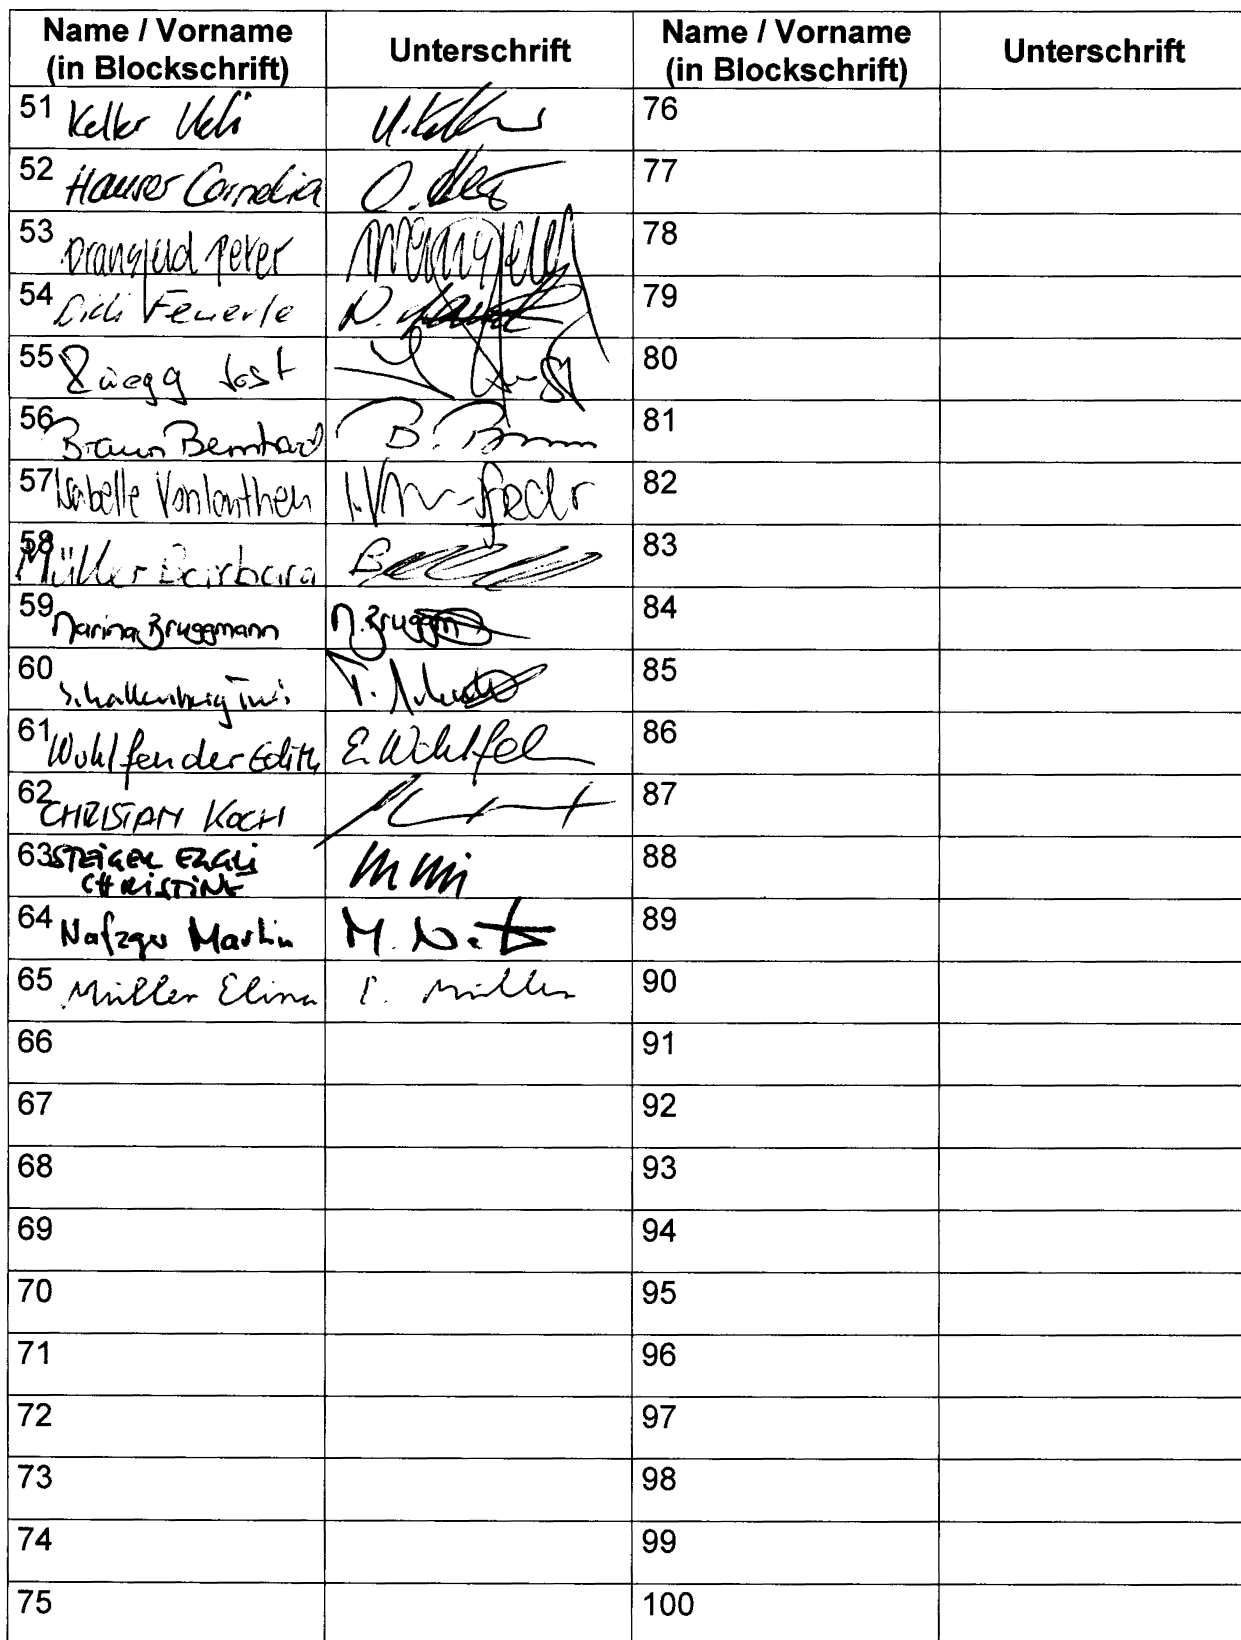 Name / Vorname
(in Blockschrift)
Unterschrift
Name / Vorname
(in Blockschrift)
Unterschrift
51 Keller Ueli U. Keller
76
52 Hauser Cornelia C.
77
53 Drangfeld Peter
78
54 Didi Feuerle D.
79
55 Rüegg Jost
80
56 Braun Bernhard B. Braun
81
57 Isabelle Vonlanthen
82
58 Müller Barbara B
83
59 Marina Bruggmann M. Bruggm
84
60 Schallenberg Turi T.
85
61 Wohlfender Edith E. Wohlfe
86
62 CHRISTIAN KOCH
87
63 STEIGER EGGLI
CHRISTINE
88
64 Nafzger Martin M. Na
89
65 Müller Elina E. Müller
90
66
91
67
92
68
93
69
94
70
95
71
96
72
97
73
98
74
99
75
100